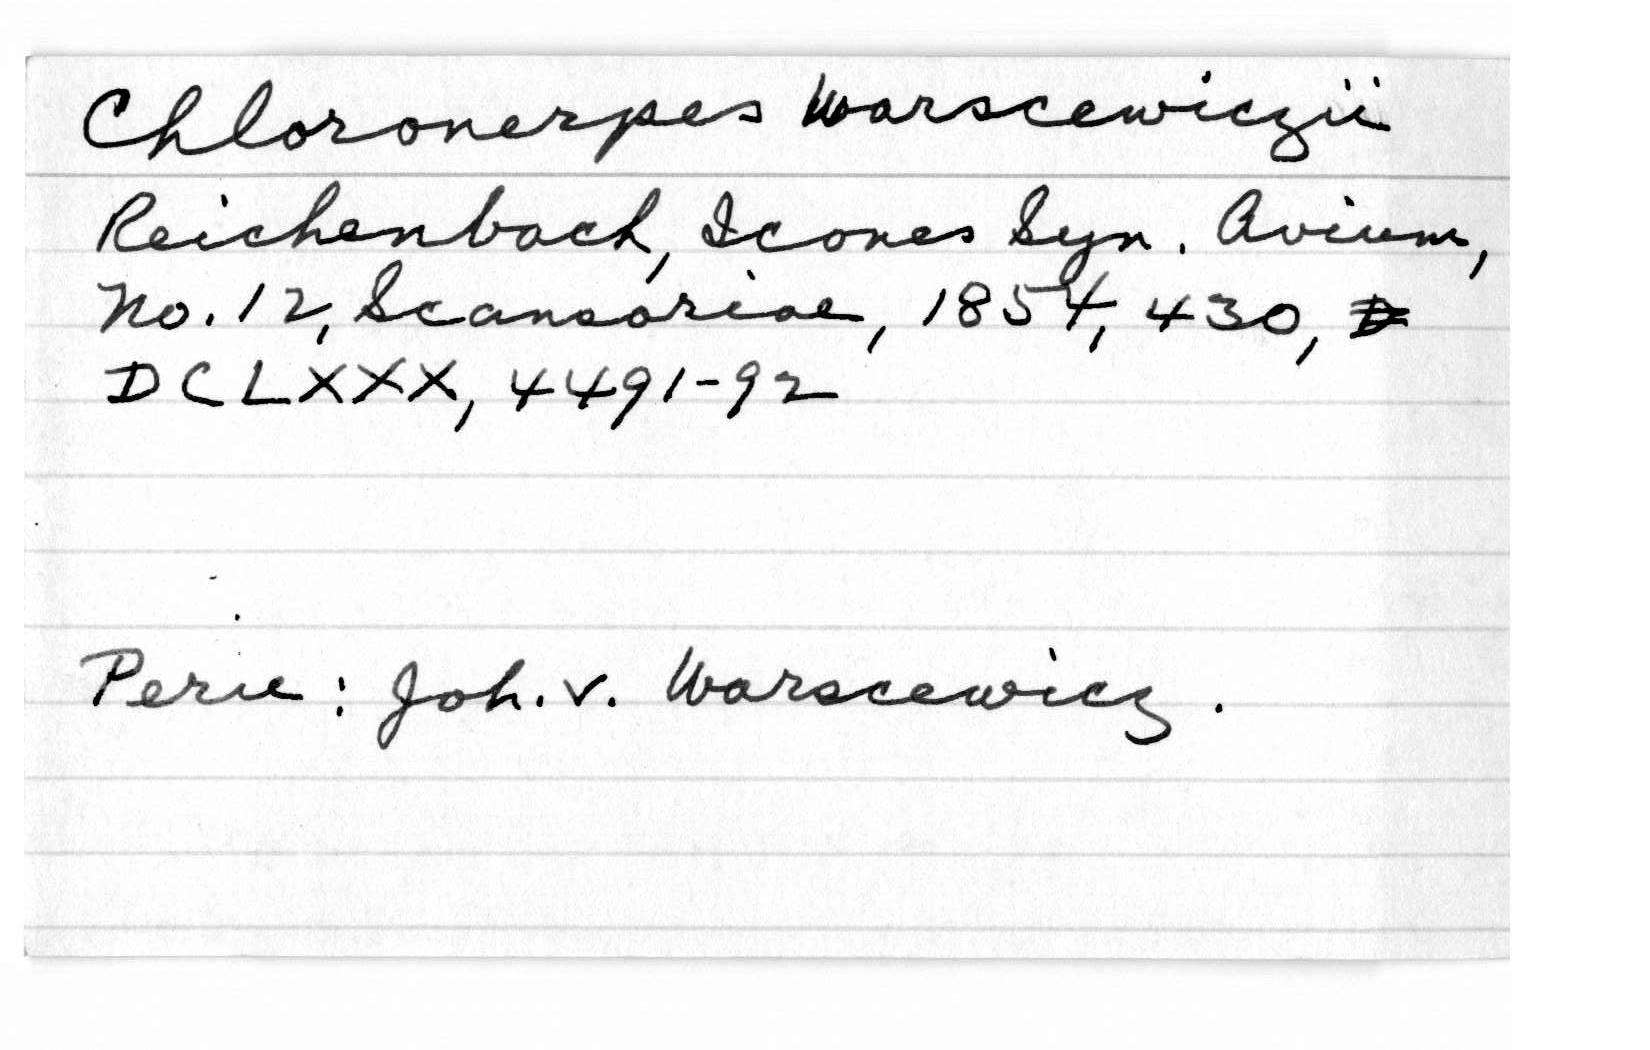 Chloronerpes Warscewiczii
Reichenbach, Icones Syn. Avium,
No. 12, Scansoriae, 1854, 430,
DCLXXX, 4491-92
Peru: Joh. v. Warscewicz.